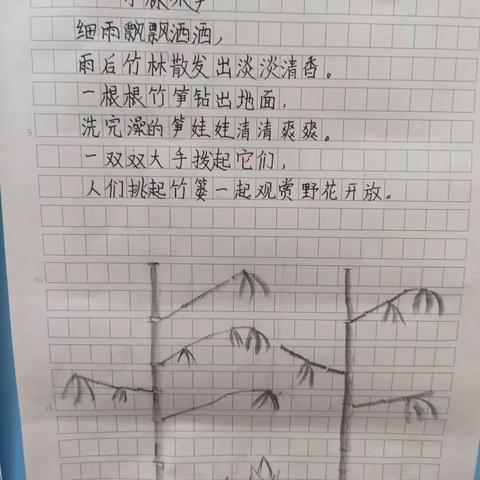 细雨飘飘洒洒，
雨后竹林散发出淡淡清香。
一根根竹笋钻出地面，
洗完澡的笋娃娃清清爽爽。
一双双大手拨起它们，
人们挑起竹篓一起观赏野花开放。
5
10
15